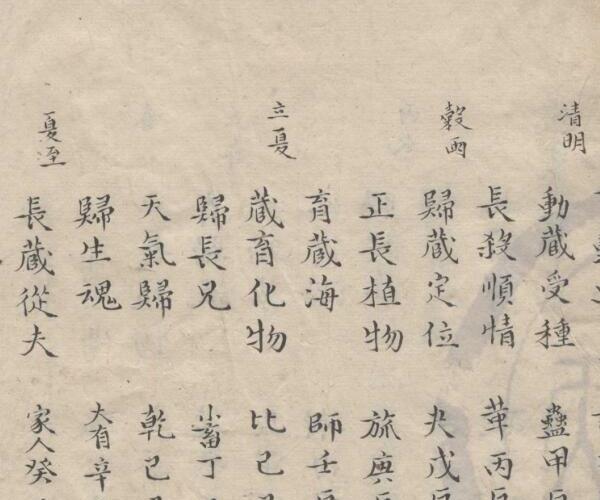 清明
動藏受種 蠱甲
長殺順情 革丙
穀雨
歸藏定位 夬戊
正長植物 旅庚
育藏海 師壬
立夏
藏育化物 比己
歸長兄 小畜丁
天氣歸 乾己
歸生魂 大有辛
夏至
長藏從夫 家人癸